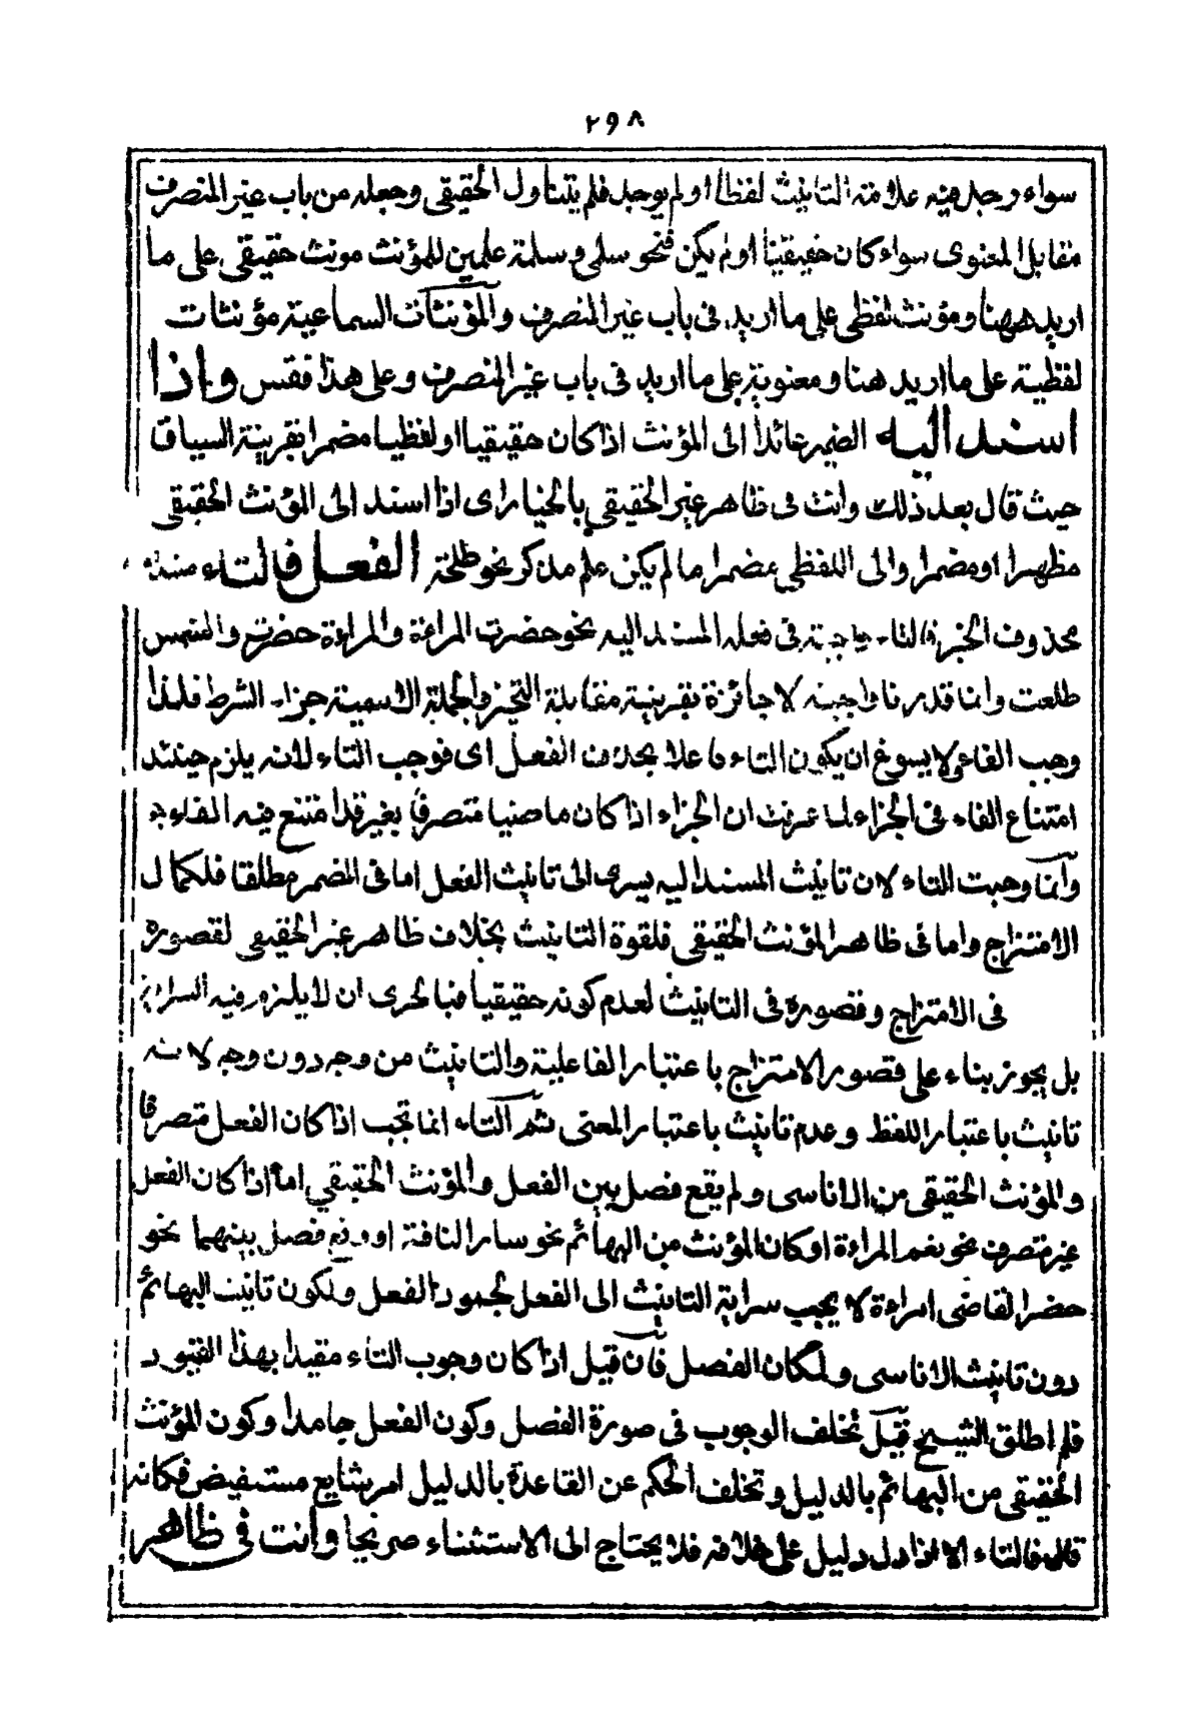 ٢٩٨
سواء وجد فيه علامة التانيث لفظا او لم يوجد فلم يتناول الحقيقى وجعله من باب غير المنصرف
مقابل المعنوى سواء كان حقيقيا او لم يكن فنحو سلمى وسلمة علمين للمؤنث مونث حقيقى على ما
اريد ههنا ومؤنث لفظى على ما اريد فى باب غير المنصرف والمؤنثات السماعية مؤنثات
لفظية على ما اريد هنا ومعنوية على ما اريد فى باب غير المنصرف وعلى هذا فقس واذا
اسند اليه الضمير عائدا الى المؤنث اذا كان حقيقيا او لفظيا مضمرا بقرينة السياق
حيث قال بعد ذلك وانت فى ظاهر غير الحقيقى بالخيار اى اذا اسند الى المؤنث الحقيقى
مظهرا او مضمرا والى اللفظى مضمرا ما لم يكن علم مذكر نحو طلحة الفعل فالتاء مبتداء
محذوف الخبر فالتاء واجبة فى فعله المسند اليه نحو حضرت المراءة والمراءة حضرت والشمس
طلعت وانما قدرنا واجبة لا جائزة بقرينة مقابلة التخيير والجملة الاسمية جزاء الشرط فلذا
وجب الفاء ولا يسوغ ان يكون التاء فاعلا بحذف الفعل اى فوجب التاء لانه يلزم حينئذ
امتناع الفاء فى الجزاء لما عرفت ان الجزاء اذا كان ماضيا متصرفا بغير قد امتنع فيه الفاء
وانما وجبت التاء لان تانيث المسند اليه يسرى الى تانيث الفعل اما فى المضمر مطلقا فلكمال
الامتزاج واما فى ظاهر المؤنث الحقيقى فلقوة التانيث بخلاف ظاهر غير الحقيقى لقصوره
فى الامتزاج وقصوره فى التانيث لعدم كونه حقيقيا فبالحرى ان لا يلزم فيه السراية
بل يجوز بناء على قصور الامتزاج باعتبار الفاعلية والتانيث من وجه دون وجه لانه
تانيث باعتبار اللفظ وعدم تانيث باعتبار المعنى ثم التاء انما تجب اذا كان الفعل متصرفا
والمؤنث الحقيقى من الاناسى ولم يقع فصل بين الفعل والمؤنث الحقيقي اما اذا كان الفعل
غير متصرف نحو نعم المراءة او كان المؤنث من البهائم نحو سار الناقة او وقع فصل بينهما نحو
حضر القاضى امراءة لا يجب سراية التانيث الى الفعل لجمود الفعل ولكون تانيث البهائم
دون تانيث الاناسى ولمكان الفصل فان قيل اذا كان وجوب التاء مقيدا بهذا القيود
فلم اطلق الشيخ قيل تخلف الوجوب فى صورة الفصل وكون الفعل جامدا وكون المؤنث
الحقيقى من البهائم بالدليل وتخلف الحكم عن القاعدة بالدليل امر شايع مستفيض فكانه
قال فالتاء الا اذا دل دليل على خلافه فلا يحتاج الى الاستثناء صريحا وانت فى ظاهر